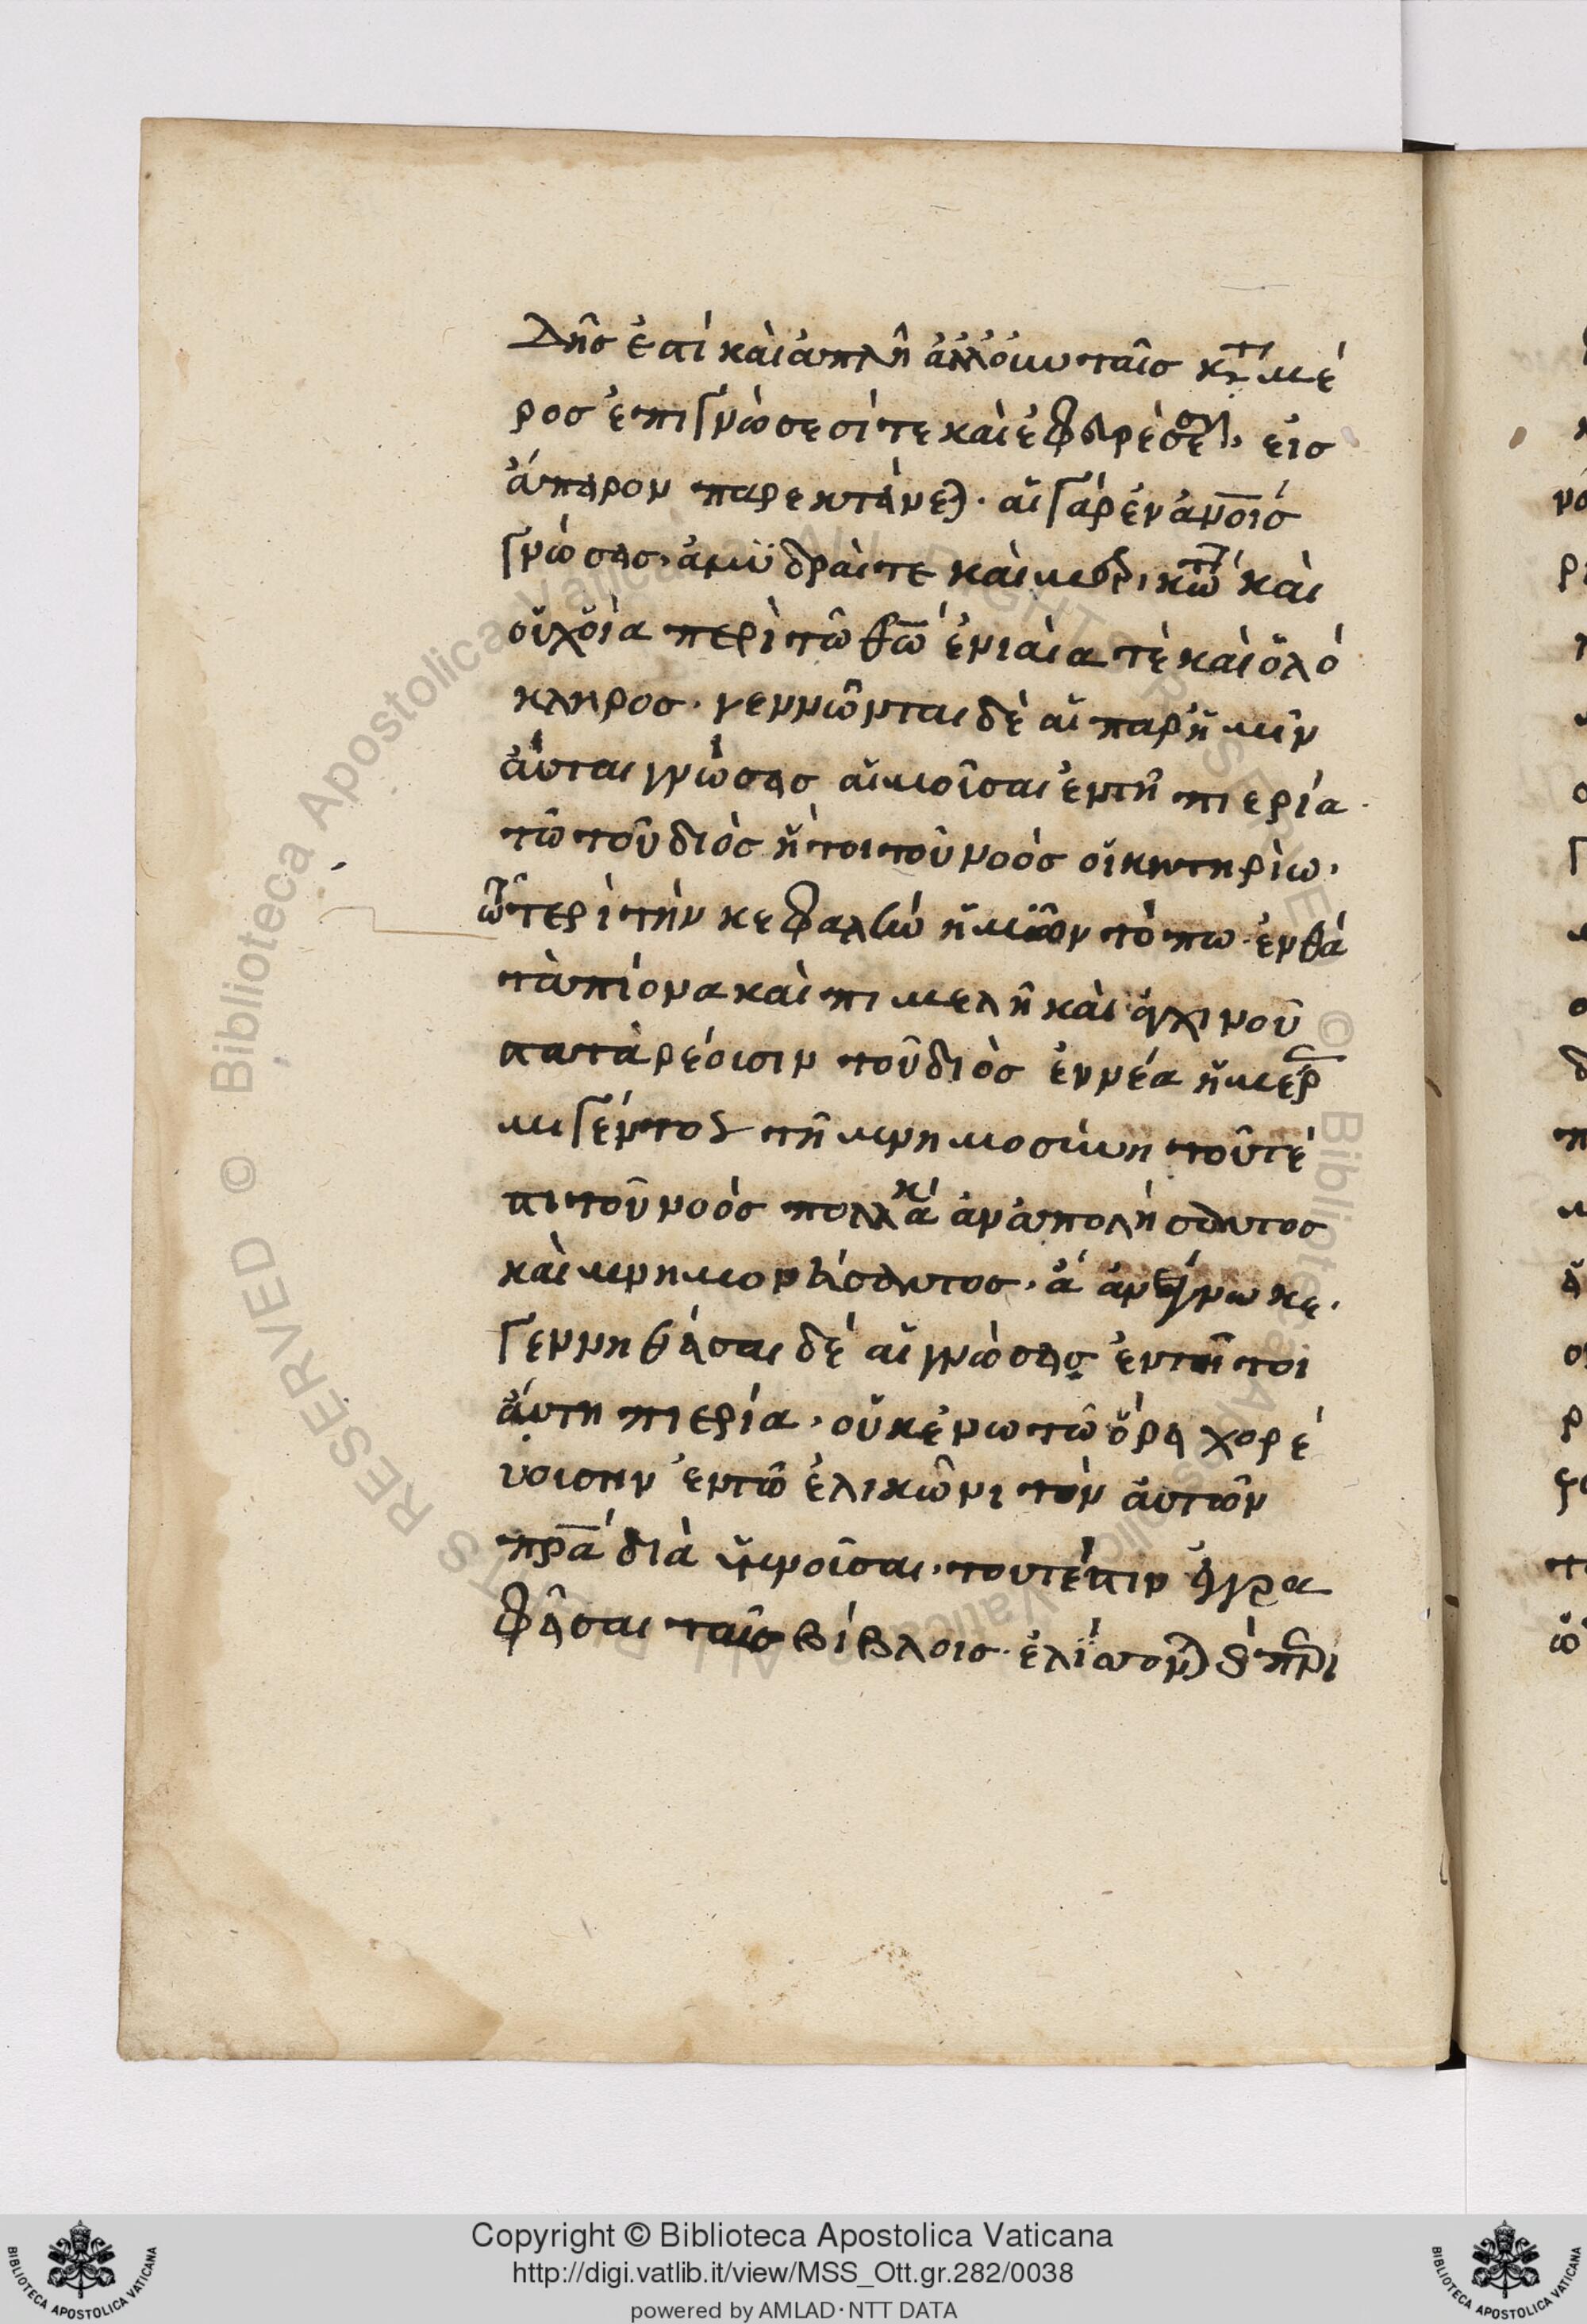 δης ἐστὶ καὶ ἁπλῆ ἀλλ' ὅμως ταῖς κατὰ μέ
ρος ἐπιγνώσεσί τε καὶ ἐφευρέσεσιν, εἰς
ἄπειρον παρεκτείνεται. αἱ γὰρ ἐν ἀνοις
γνώσεις, ἀμυδραί τε καὶ μερικώταται καὶ
οὐχ' οἷα περὶ τῶ θῶ ἐνιαία τὲ καὶ ὁλό
κληρος. γεννῶνται δὲ αἱ παρ' ἡμῖν
αὗται γνώσεις αἱ μοῦσαι ἐν τῆ πιερία
τῶ τοῦ διὸς ἤτοι τοῦ νοὸς οἰκητηρίω.
τῶ περὶ τὴν κεφαλὴν ἡμῶν τόπω ἔνθα
τὰ πίονα καὶ πιμελῆ καὶ
κατὰ ῥέουσιν τοῦ διὸς ἐννέα ἡμέρ
μιγέντος τῆ μνημοσύνη τουτέ
στι τοῦ νοὸς πολλάκ ἀναπολήσαντος
καὶ μνημονεύσαντος, ἃ ἀνέγνωκε.
γεννηθεῖσαι δὲ αἱ γνώσεις ἐν τῆ τοι
αύτη πιερία, οὐκ ἐν ὦ τῶ ὄρει χορεύ
ουσιν ἐν τῶ ἑλικῶνι τὸν αὐτῶν
πρα δία ὑμνοῦσαι. τουτέστιν ἐγγρα
φεῖσαι ταῖς βίβλοις ἑλίττονται